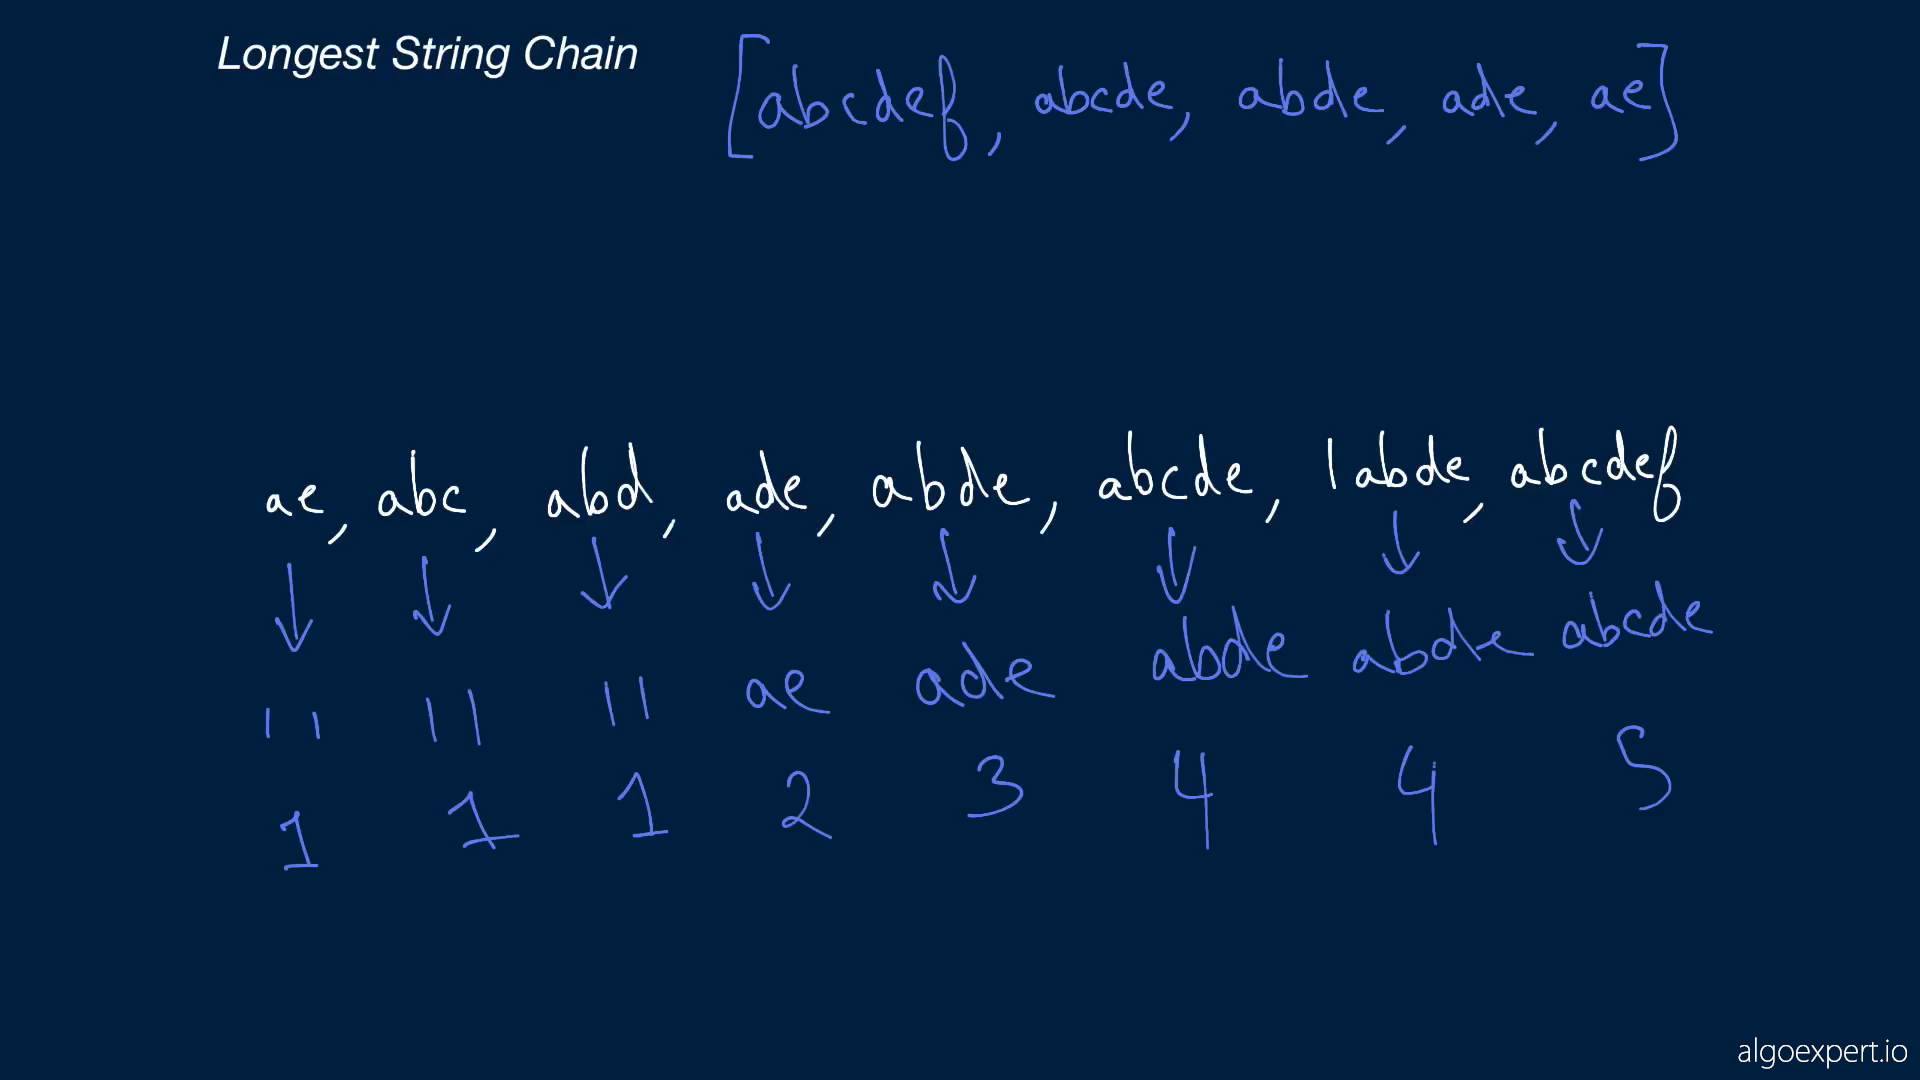 Longest String Chain
[abcdef, abcde, abde, ade, ae]
ae, abc, abd, ade, abde, abcde, 1abde, abcdef
" " " " " " ae ade abde abde abcde
1 1 1 2 3 4 4 5
algoexpert.io